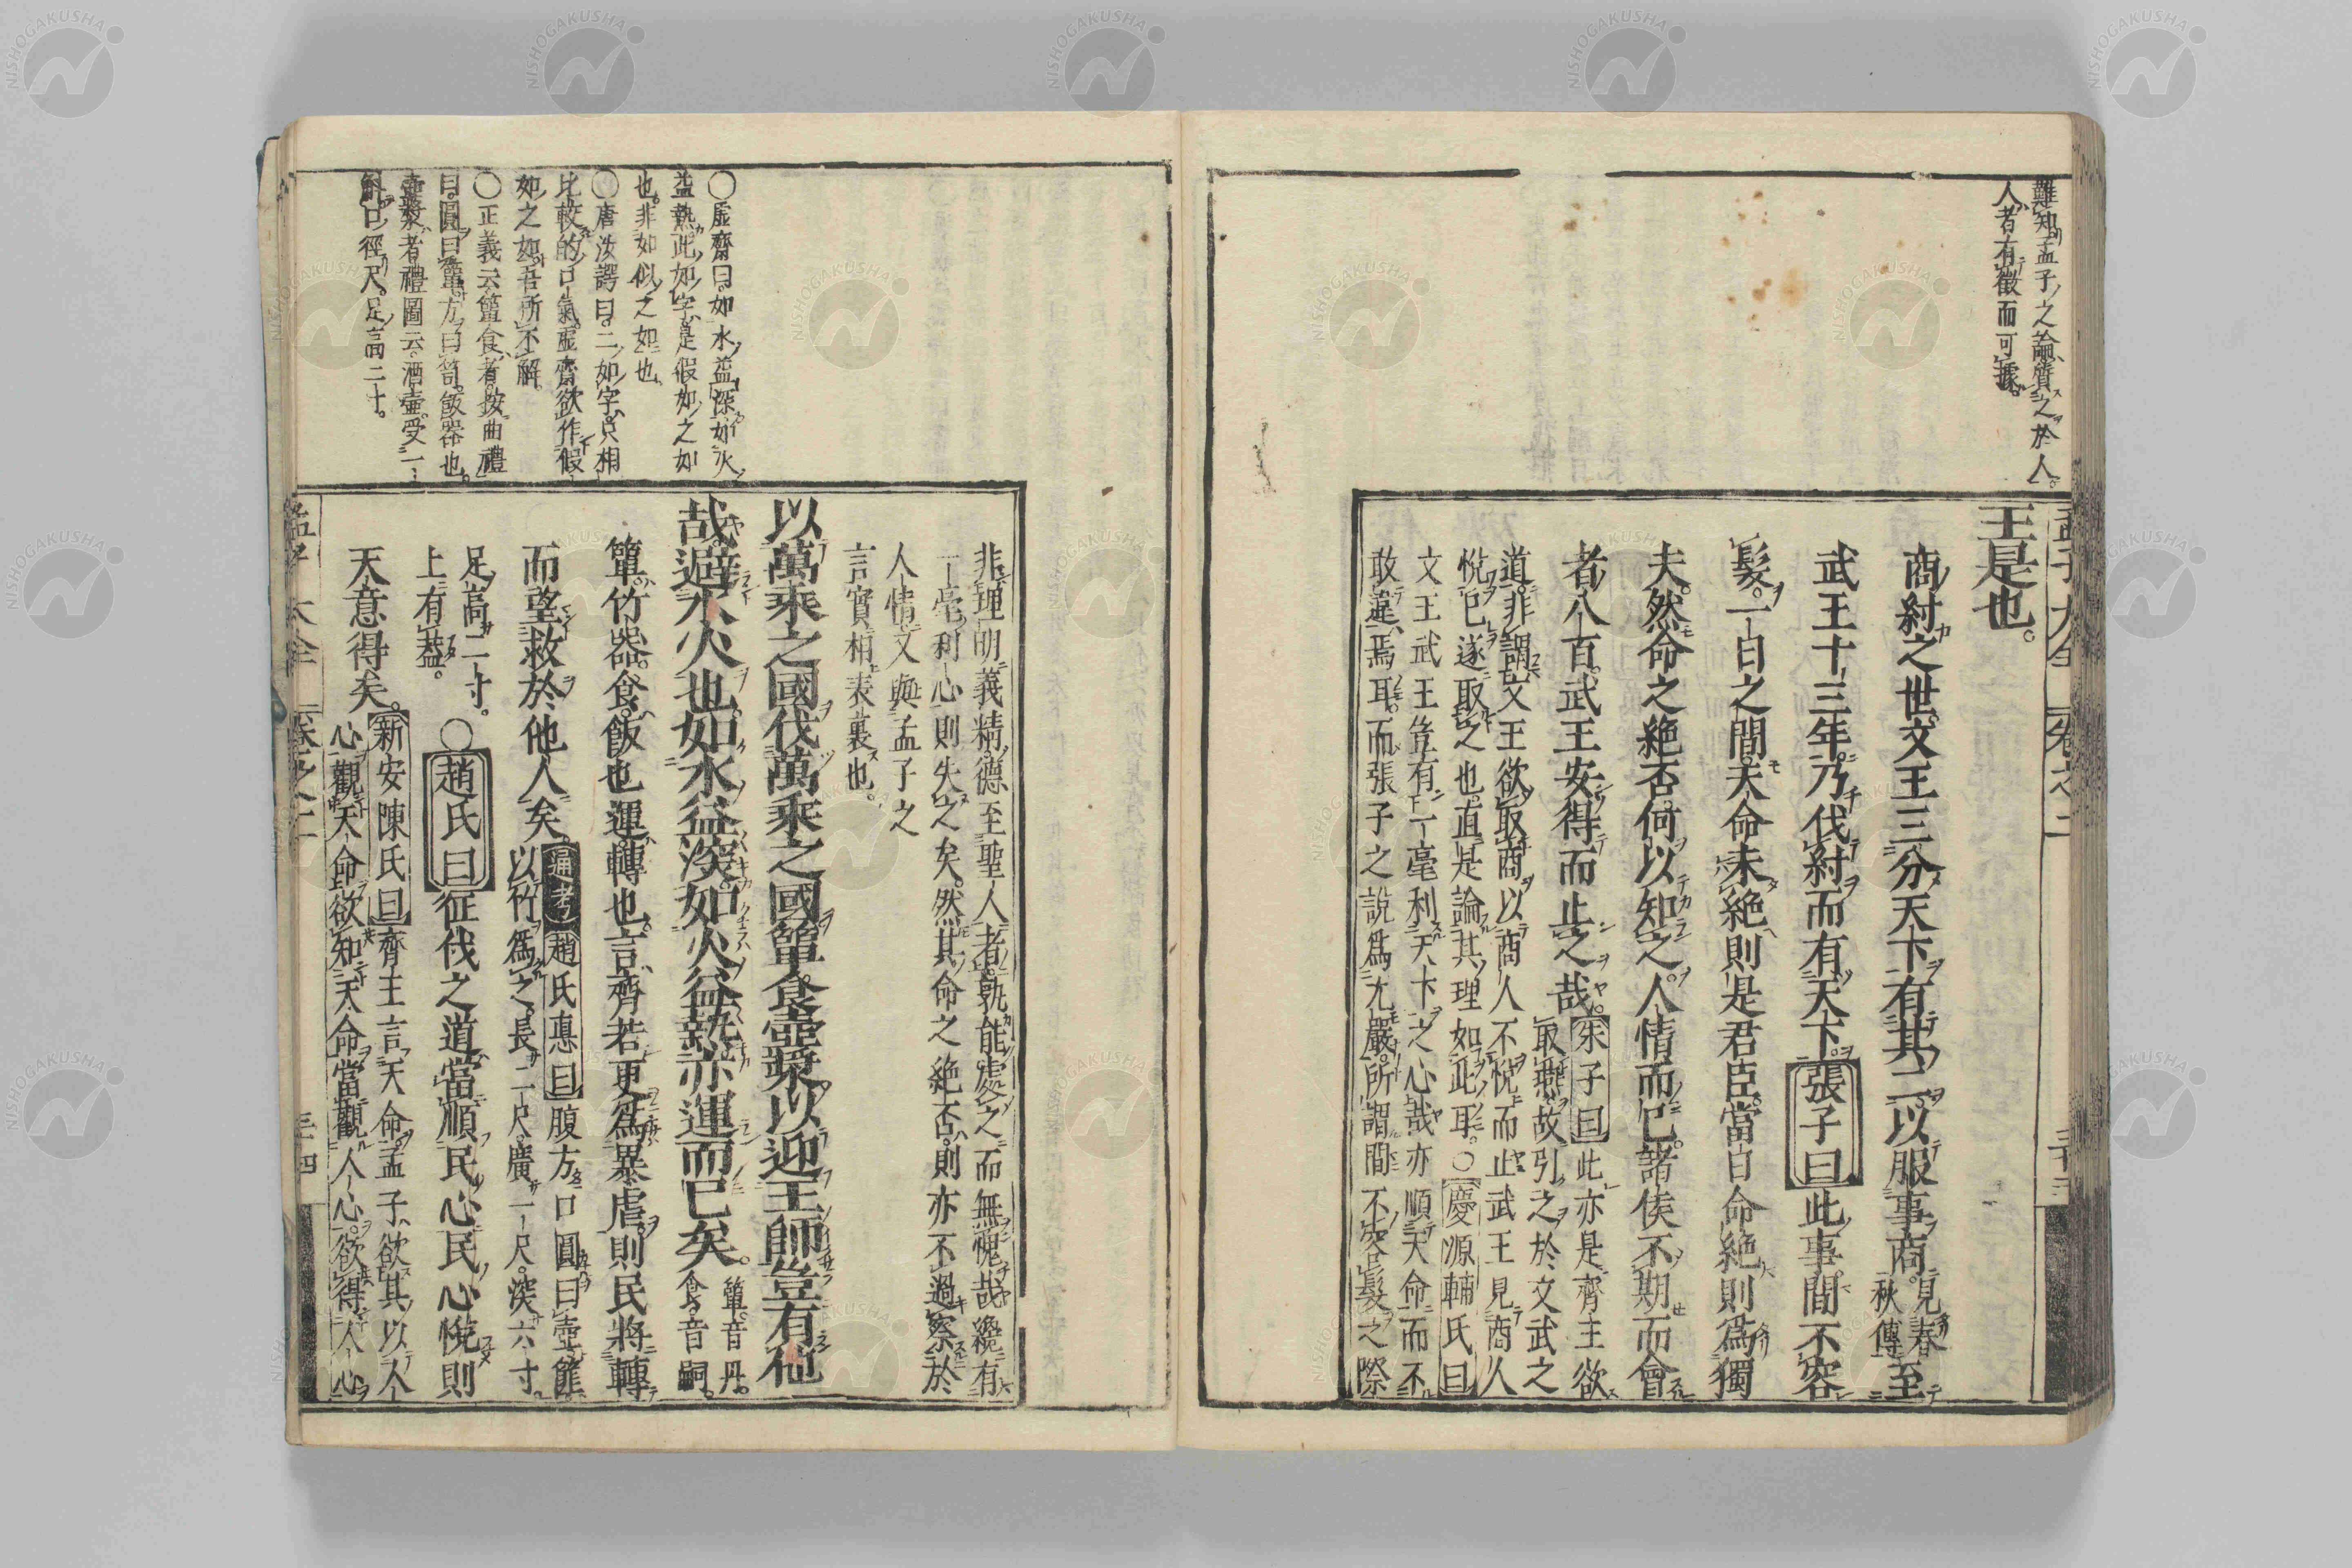 難知孟子之論質之於人。
人者有徵而可據。
孟子大全
卷之二
三十三
王是也。
商紂之世文王三分天下有其二以服事商。見春
秋傳
至
武王十三年乃伐紂而有天下。張子曰此事間不容
髮。一日之間天命未絶則是君臣當日命絶則爲獨
夫。然命之絶否何以知之。人情而已。諸侯不期而會
者八百。武王安得而止之哉。
朱子曰此亦是齊王欲
取燕故引之於文武之
道。非謂文王欲取商以商人不悅而止武王見商人
悅已遂取之也。直是論其理如此耳。○慶源輔氏曰
文王武王豈有一毫利天下之心哉亦順天命而不
敢違焉耳。而張子之說爲尤嚴。所謂間不容髮之際
○虛齋曰。如水益深如火
益熱此如字是假如之如
也。非如似之如也。
○唐汝諤曰。二如字只相
比較的口氣虛齋欲作假
如之如。吾所不解。
○正義云簞食者按曲禮
曰。圓曰簞。方曰笥。飯器也
壷漿者禮圖云。酒壷。受一
斛口徑尺。足高二寸。
非理明義精德至聖人者孰能處之而無愧哉纔有
一毫利心則失之矣。然其命之絶否則亦不過察於
人情文與孟子之
言實相表裏也。
以萬乘之國伐萬乘之國簞食壺漿以迎王師豈有他
哉避水火也。如水益深如火益熱亦運而已矣。
簞。音丹。
食。音嗣。
簞竹器。食飯也運轉也。言齊若更爲暴虐則民將轉
而望救於他人矣。
通考趙氏悳曰腹方口圓曰壺
以竹爲之。長二尺廣一尺。深六寸
足高二寸。
上有蓋。
○趙氏曰征伐之道當順民心民心悅則
天意得矣。
新安陳氏曰齊王言天命。孟子欲其以人
心觀天命欲知天命當觀人心。欲得人心
孟子大全
卷之二
三十四